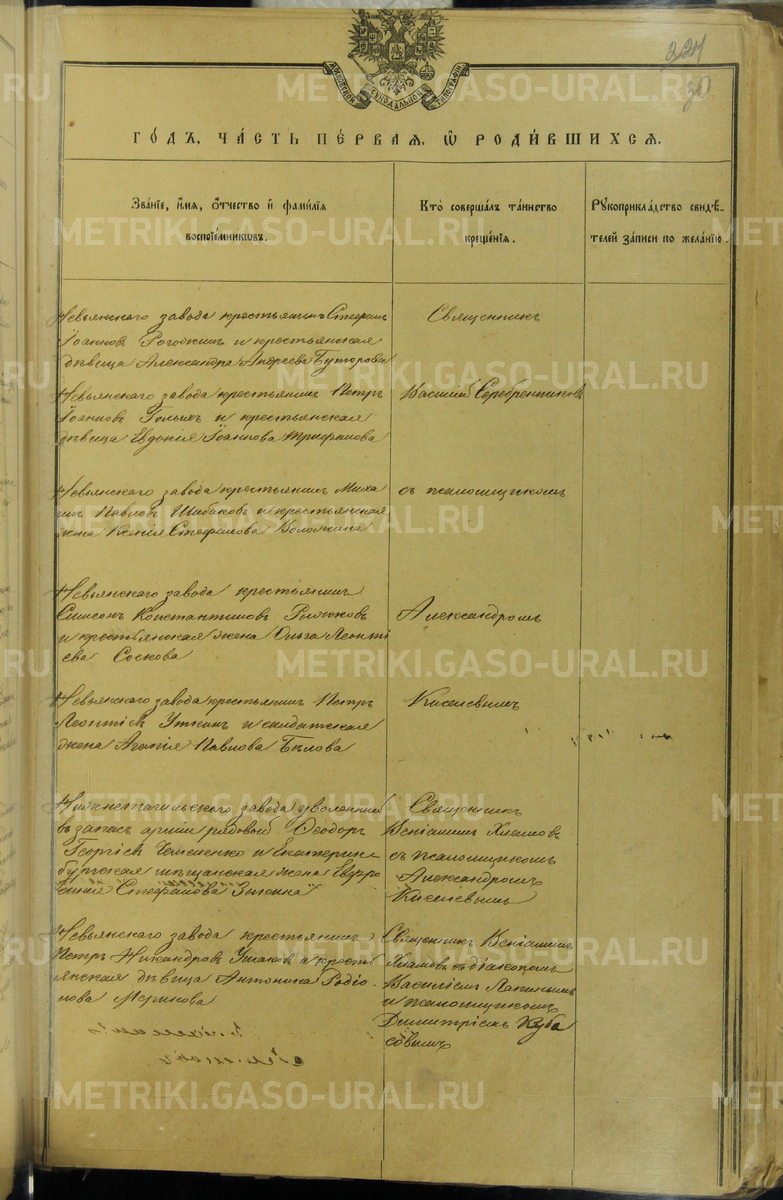 МОСКОВСКОЙ СѴНОДАЛЬНОЙ ТИПОГРАФІИ
224
30
ГО́ДЪ, ЧА́СТЬ ПЕ́РВАЯ, Ѽ РОДИ́ВШИХСЯ.
Зва́нїе, и҆́мя, ѻ҆́тчество и҆ фами́лїя
воспрїе́мникѡвъ.
Кто̀ соверша́лъ та́инство
креще́нїя.
Рꙋкоприкла́дство свидѣ́-
телей за́писи по жела́нїю.
Невьянскаго завода крестьянинъ Стефанъ
Іоанновъ Рогожкинъ и крестьянская
дѣвица Александра Андреева Буторова
Священникъ
Невьянскаго завода крестьянинъ Петръ
Іоанновъ Голыхъ и крестьянская
дѣвица Евдокія Іоаннова Трифанова
Василій Серебренниковъ
Невьянскаго завода крестьянинъ Миха
илъ Павловъ Шибаковъ и крестьянская
жена Ксенія Стефанова Воложина
съ псаломщикомъ
Невьянскаго завода крестьянинъ
Симеонъ Константиновъ Рыжковъ
и крестьянская жена Ольга Леонтi
ева Соскова
Александромъ
Невьянскаго завода крестьянинъ Петръ
Леонтіевъ Уткинъ и солдатская
жена Агапія Павлова Бѣлова
Киселевымъ
Нижнетагильскаго завода уволенный
въ запасъ арміи рядовой Ѳеодоръ
Георгіевъ Чемеленко и Екатерин-
бургская мѣщанская жена Евфро
синія Стефанова Зыкина
Священникъ
Веніаминъ Хламовъ
съ псаломщикомъ
Александромъ
Киселевымъ
Невьянскаго завода крестьянинъ
Петръ Никандровъ Ушаковъ и кресть
янская дѣвица Антонина Родіо
нова Меринова
Священникъ Веніаминъ
Хламовъ съ діакономъ
Василіемъ Лапинымъ
и псаломщикомъ
Димитріемъ Куба
совымъ
METRIKI.GASO-URAL.RU